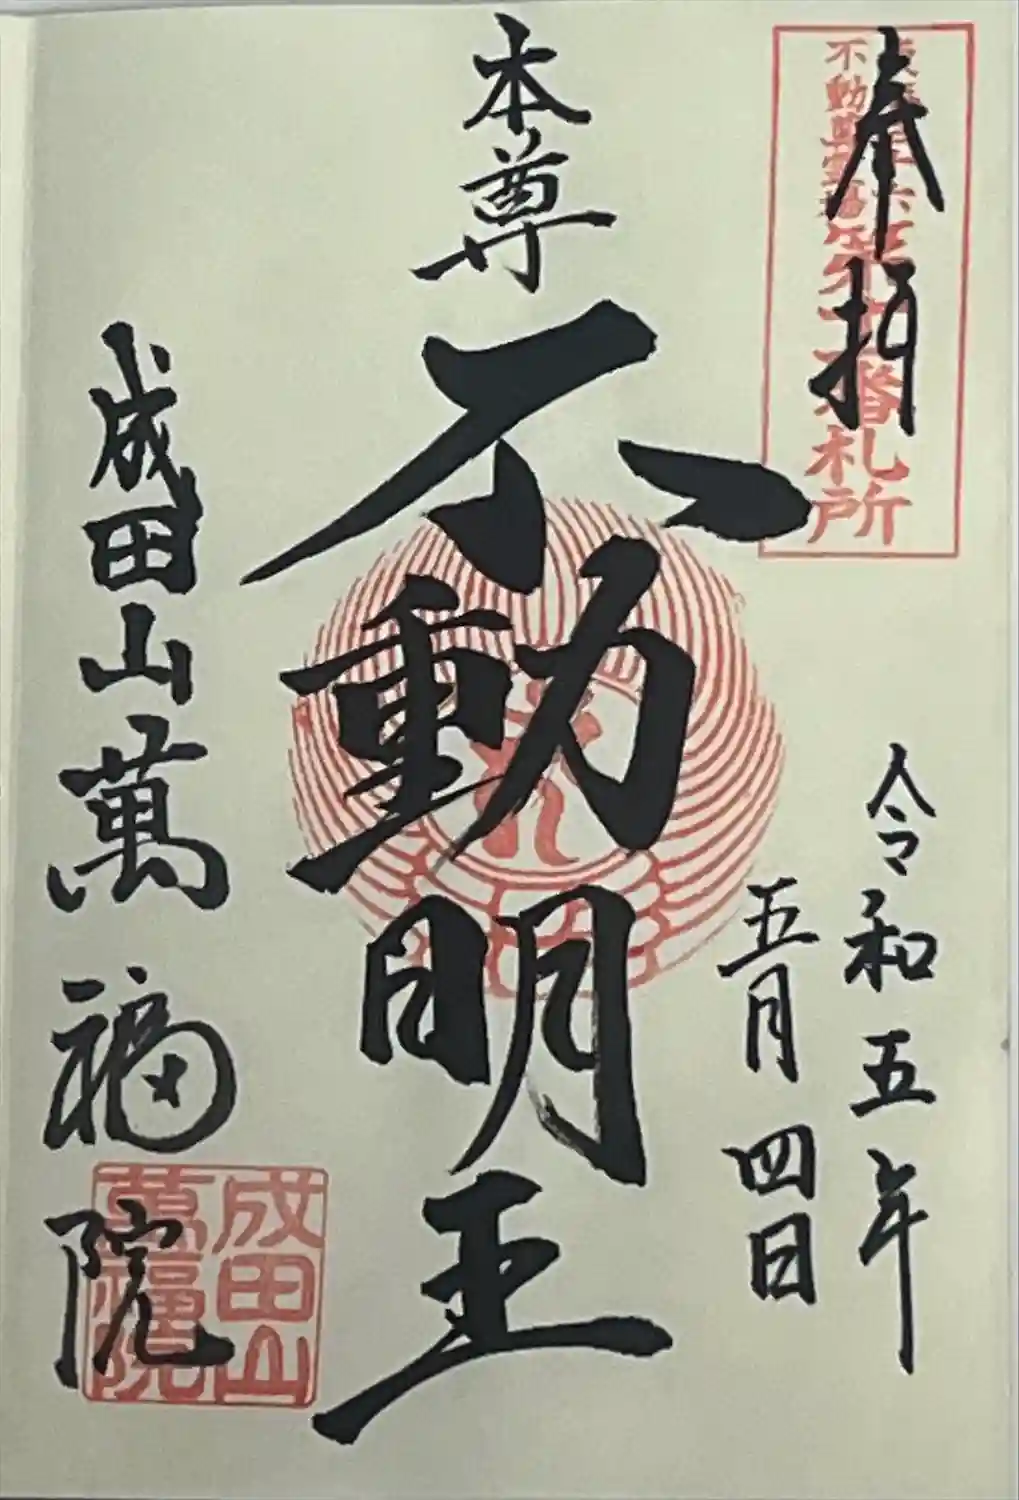 奉拝
不動尊霊場
番札所
令和五年
五月四日
本尊
不動明王
成田山萬福院
成田山
萬福院